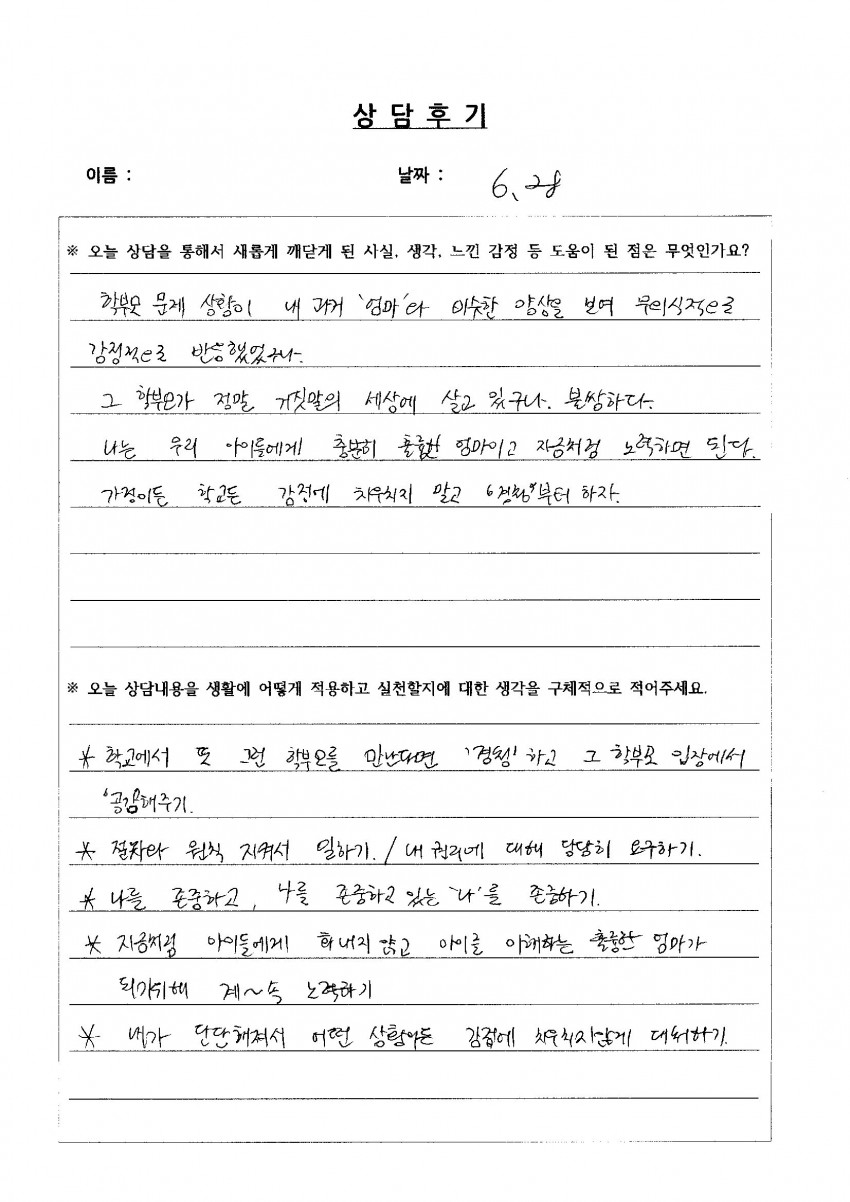 상 담 후 기
이름 : 날짜 : 6. 28
※ 오늘 상담을 통해서 새롭게 깨닫게 된 사실, 생각, 느낀 감정 등 도움이 된 점은 무엇인가요?
학부모 문제 상황이 내 과거 '엄마'와 비슷한 양상을 보여 무의식적으로
감정적으로 반응했었구나.
그 학부모가 정말 거짓말의 세상에 살고 있구나. 불쌍하다.
나는 우리 아이들에게 충분히 훌륭한 엄마이고 지금처럼 노력하면 된다.
가정이든 학교든 감정에 치우치지 말고 '경청'부터 하자.
※ 오늘 상담내용을 생활에 어떻게 적용하고 실천할지에 대한 생각을 구체적으로 적어주세요.
* 학교에서 또 그런 학부모를 만난다면 '경청'하고 그 학부모 입장에서
'공감해주기.
* 절차와 원칙 지켜서 일하기. / 내 권리에 대해 당당히 요구하기.
* 나를 존중하고, 나를 존중하고 있는 '나'를 존중하기.
* 지금처럼 아이들에게 화내지 않고 아이를 이해하는 훌륭한 엄마가
되기위해 계~속 노력하기
* 내가 단단해져서 어떤 상황이든 감정에 치우치지않게 대처하기.